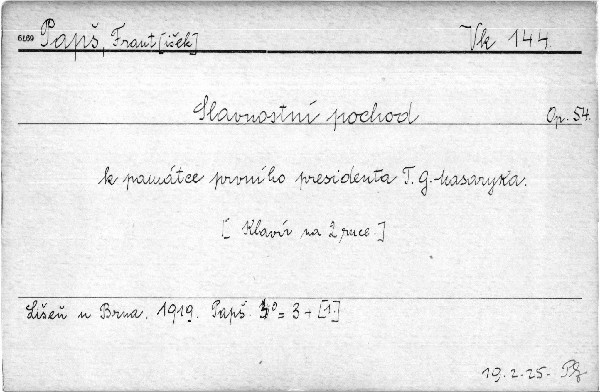 6169 Papš, Frant[išek] Vk 144.
Slavnostní pochod Op. 54.
k památce prvního presidenta T. G. Masaryka.
[Klavír na 2 ruce.]
Líšeň u Brna. 1919. Papš. 4° = 3 + [1.]
19.2.25.